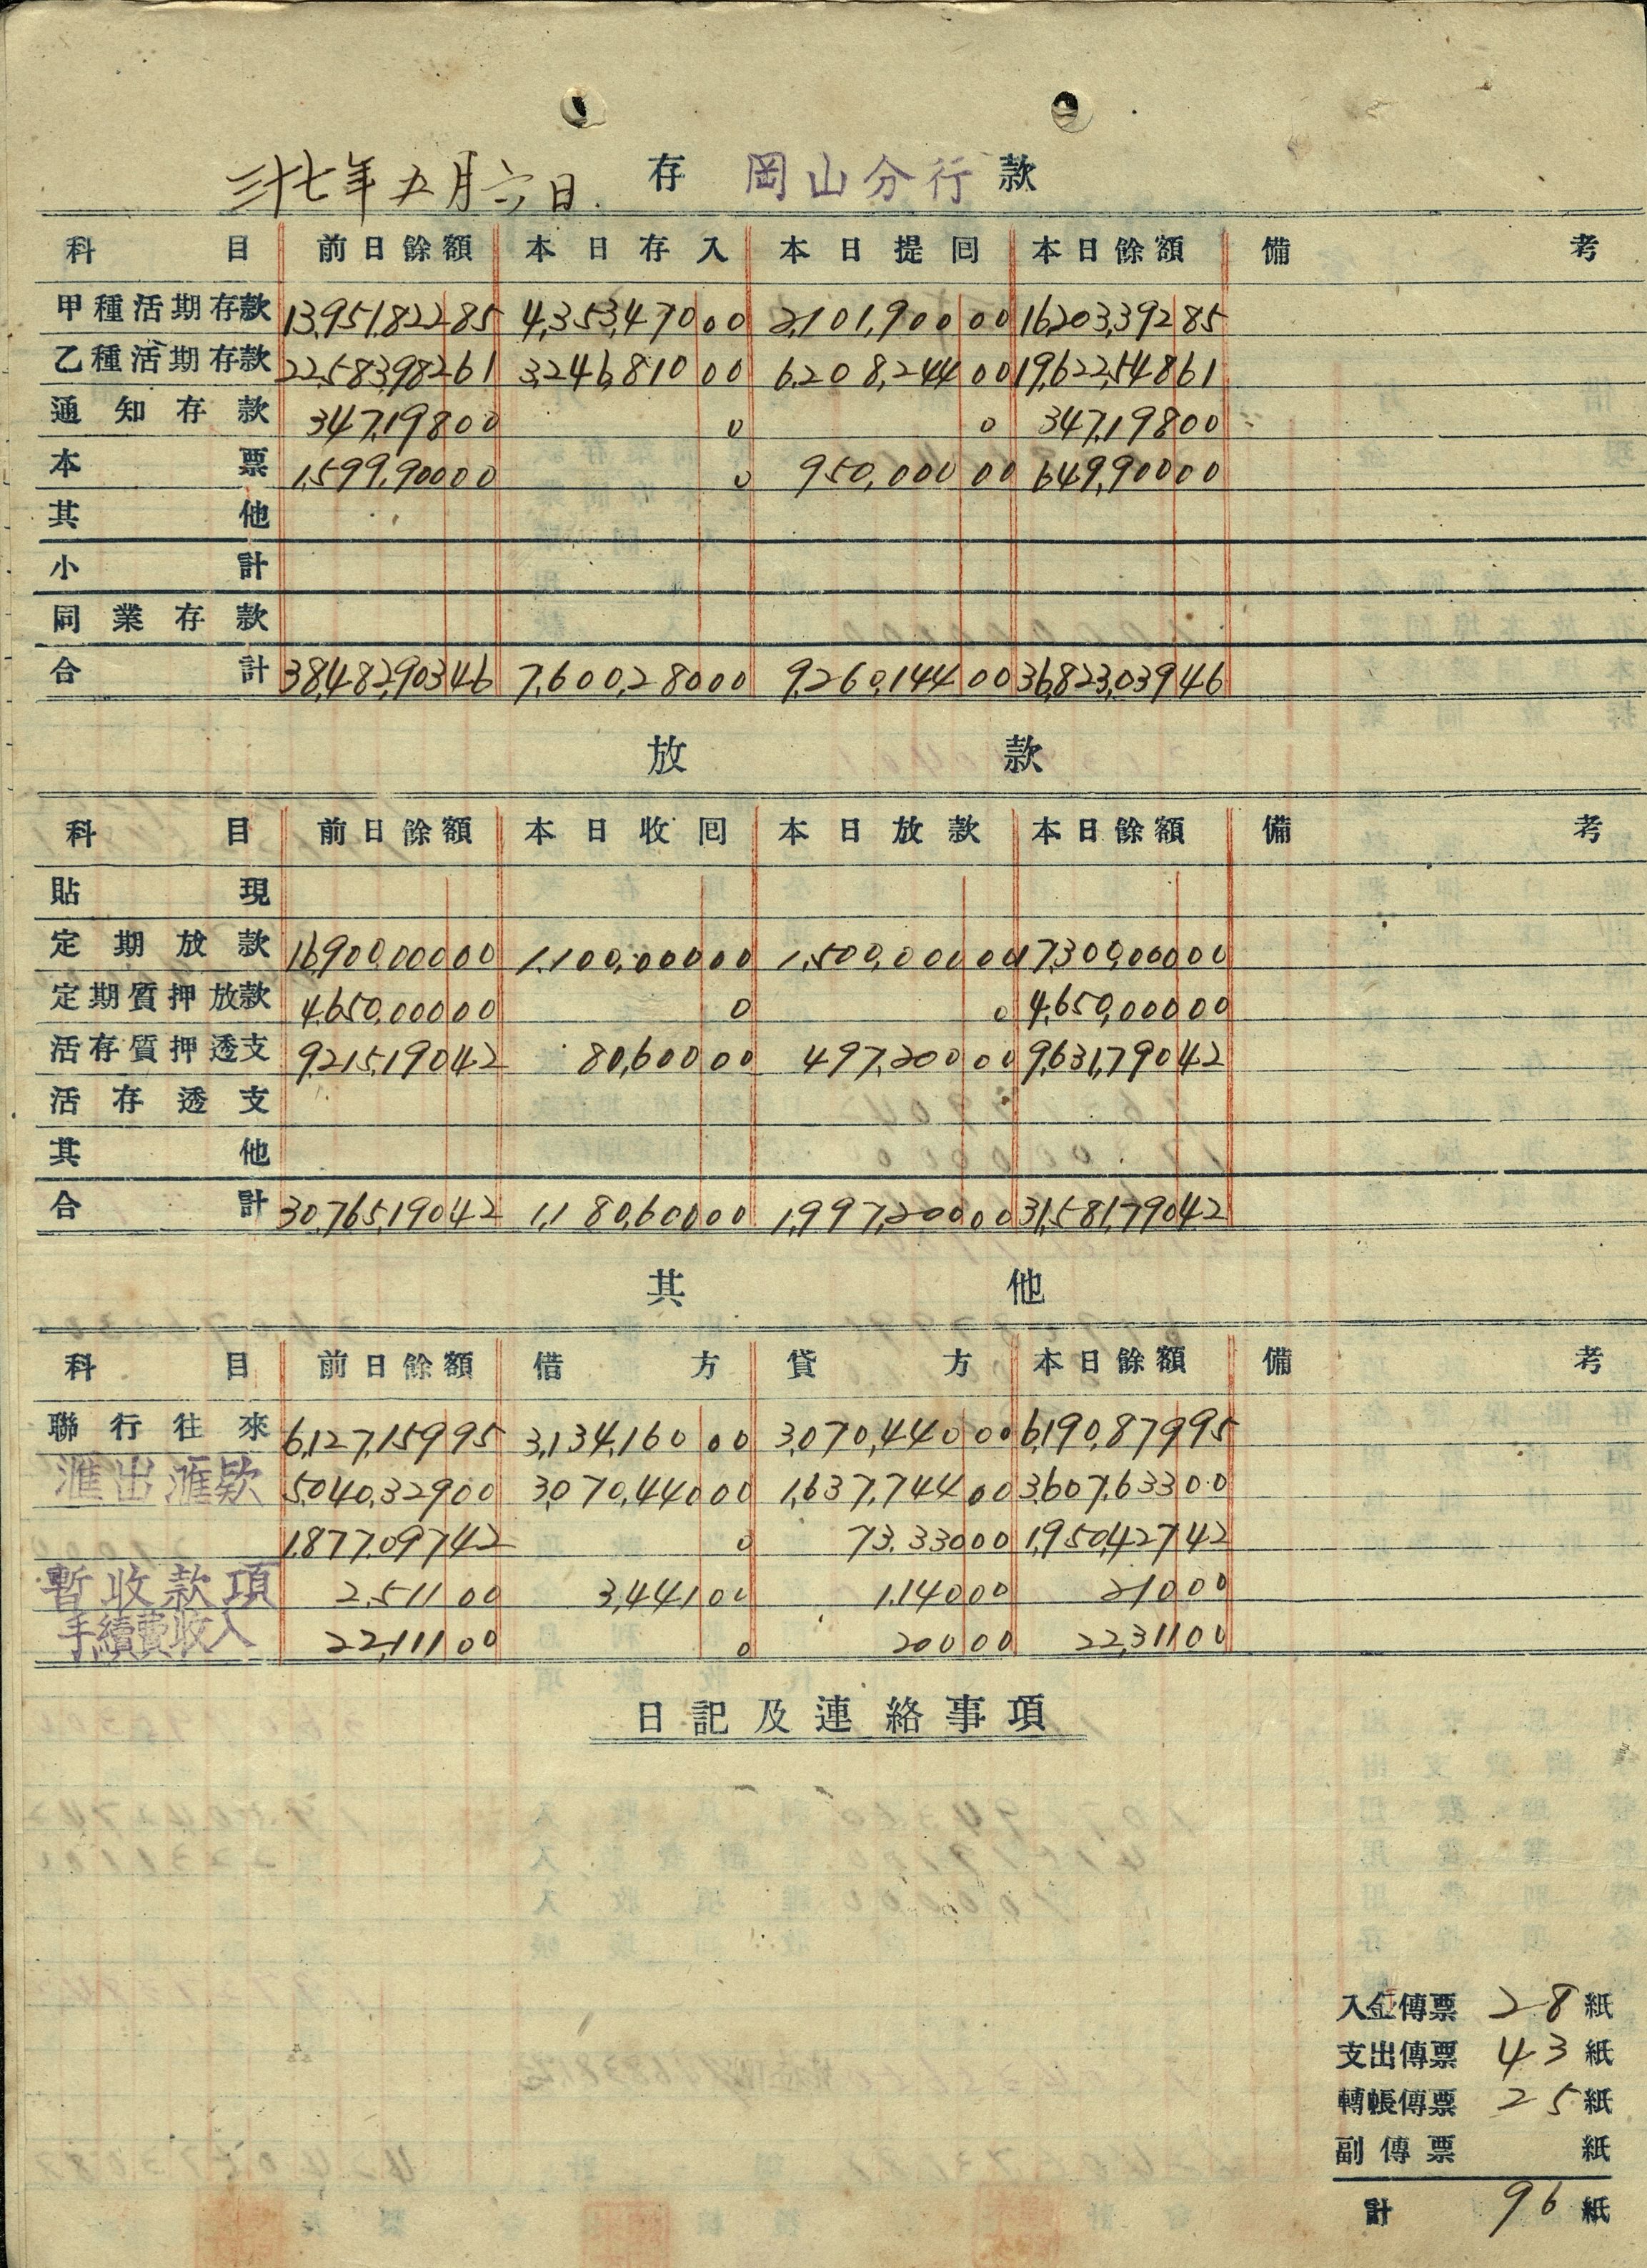 三十七年五月六日. 存 岡山分行 款
科目 前日餘額 本日存入 本日提回 本日餘額 備考
甲種活期存款 13,951,822 85 4,353,470 00 2,101,900 00 16,203,392 85
乙種活期存款 22,583,982 61 3,246,810 00 6,208,244 00 19,622,548 61
通知存款 347,198 00 0 0 347,198 00
本票 1,599,900 00 0 950,000 00 649,900 00
其他
小計
同業存款
合計 38,482,903 46 7,600,280 00 9,260,144 00 36,823,039 46
放款
科目 前日餘額 本日收回 本日放款 本日餘額 備考
貼現
定期放款 16,900,000 00 1,100,000 00 1,500,000 00 17,300,000 00
定期質押放款 4,650,000 00 0 0 4,650,000 00
活存質押透支 9,215,190 42 80,600 00 497,200 00 9,631,790 42
活存透支
其他
合計 30,765,190 42 1,180,600 00 1,997,200 00 31,581,790 42
其他
科目 前日餘額 借方 貸方 本日餘額 備考
聯行往來 6,127,159 95 3,134,160 00 3,070,440 00 6,190,879 95
滙出滙款 5,040,329 00 3,070,440 00 1,637,744 00 3,607,633 00
1,877,097 42 0 73,330 00 1,950,427 42
暫收款項 2,511 00 3,441 00 1,140 00 210 00
手續費收入 22,111 00 0 200 00 22,311 00
日記及連絡事項
入金傳票 28 紙
支出傳票 43 紙
轉帳傳票 25 紙
副傳票 紙
計 96 紙